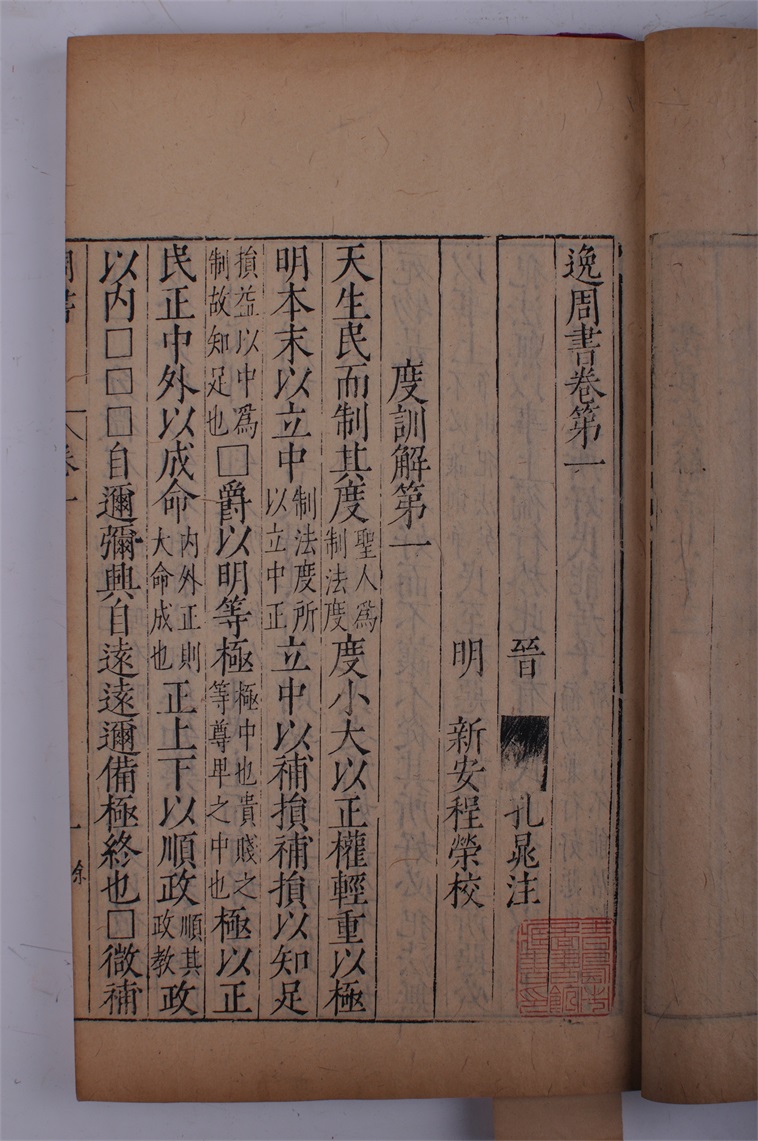 逸周書卷第一
晉 孔晁注
明 新安程榮校
度訓解第一
天生民而制其度聖人爲制法度度小大以正權輕重以極
明本末以立中制法度所以立中正立中以補損補損以知足
損益以中爲制故知足也□爵以明等極極中也貴賤之等尊卑之中也極以正
民正中外以成命內外正則大命成也正上下以順政順其政教政
以內□□□自邇彌興自遠遠邇備極終也□微補
周書 卷一 一